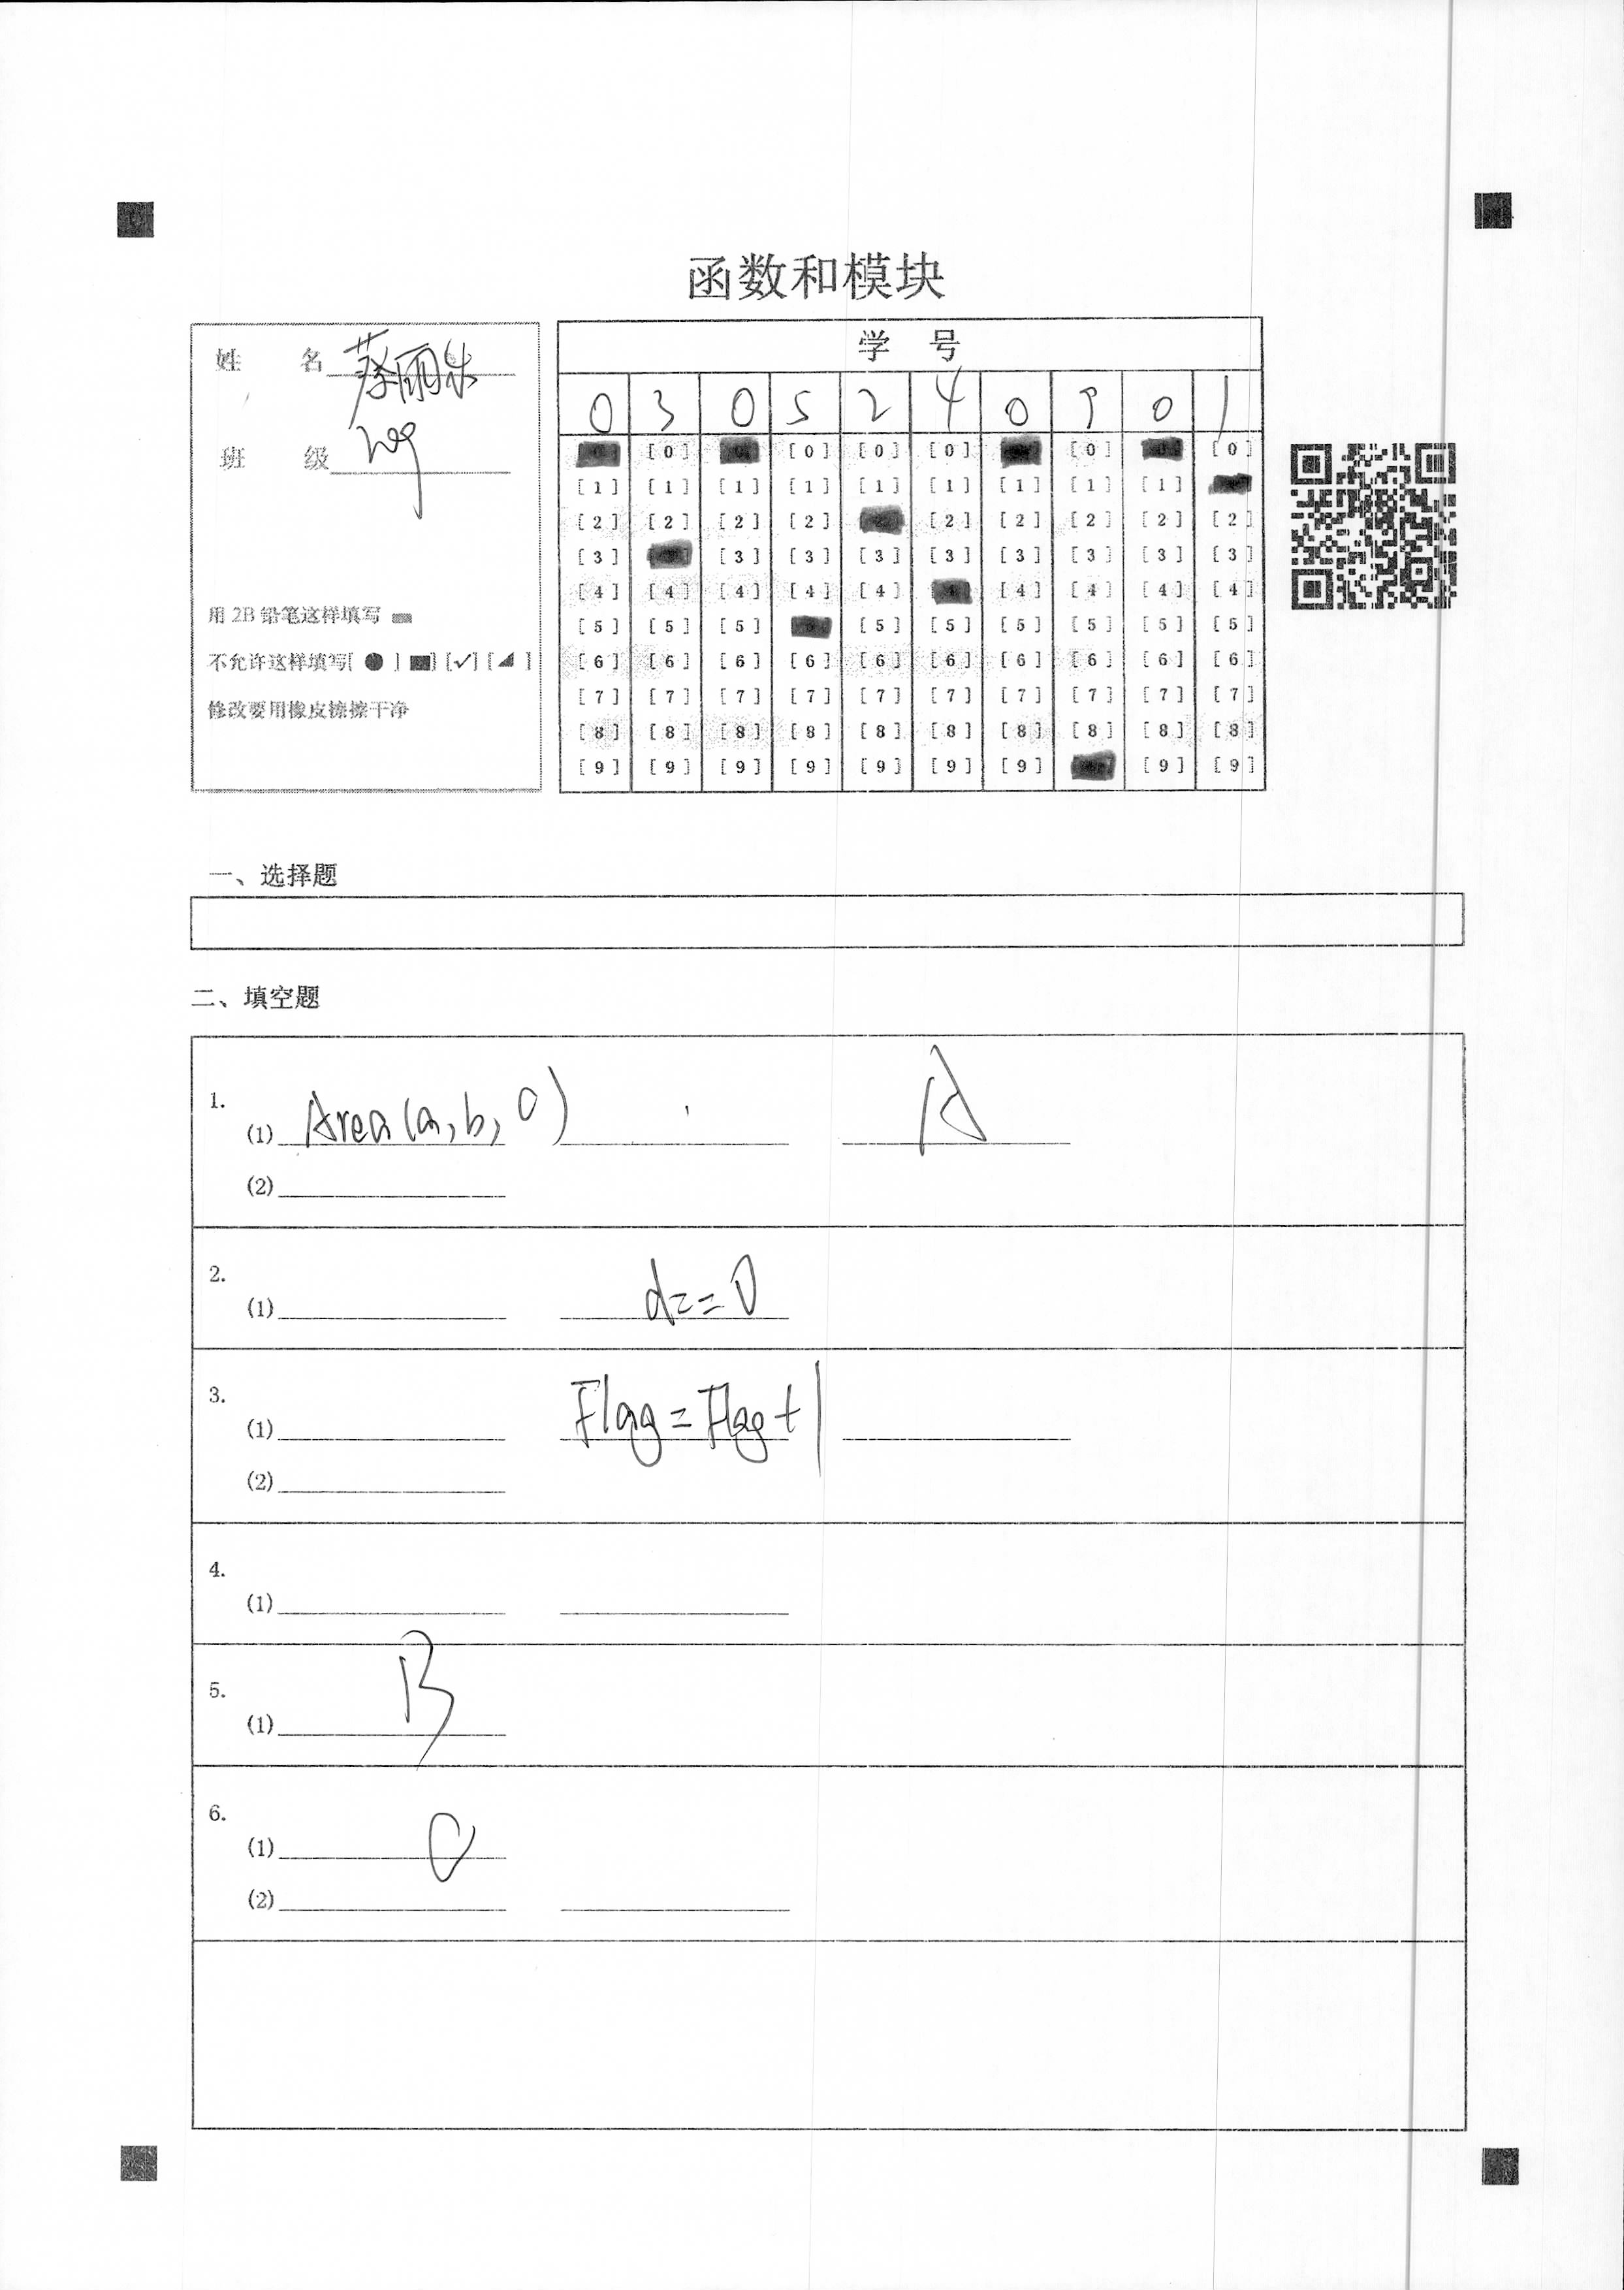 函数和模块
姓 名 蔡丽
班 级
用 2B 铅笔这样填写
不允许这样填写[ ● ] [✓] [ ]
修改要用橡皮擦擦干净
学 号
0 3 0 5 2 4 0 9 0 1
[0] [0] [0] [0] [0] [0]
[1] [1] [1] [1] [1] [1] [1] [1] [1]
[2] [2] [2] [2] [2] [2] [2] [2] [2]
[3] [3] [3] [3] [3] [3] [3] [3] [3]
[4] [4] [4] [4] [4] [4] [4] [4] [4]
[5] [5] [5] [5] [5] [5] [5] [5] [5]
[6] [6] [6] [6] [6] [6] [6] [6] [6] [6]
[7] [7] [7] [7] [7] [7] [7] [7] [7] [7]
[8] [8] [8] [8] [8] [8] [8] [8] [8] [8]
[9] [9] [9] [9] [9] [9] [9] [9] [9]
一、选择题
二、填空题
1.
(1) Area(a,b,0) A
(2)
2.
(1) d==0
3.
(1) Flag=Flag+1
(2)
4.
(1)
5.
(1) B
6.
(1) C
(2)